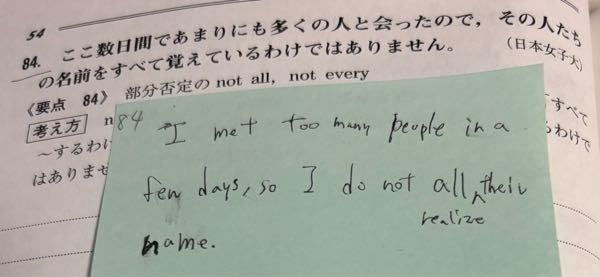 54
84. ここ数日間であまりにも多くの人と会ったので，その人たち
の名前をすべて覚えているわけではありません。 (日本女子大)
《要点 84》 部分否定の not all, not every
考え方 n すべて
～するわけ るわけで
はありませ
84 I met too many people in a
few days, so I do not all their
realize
name.